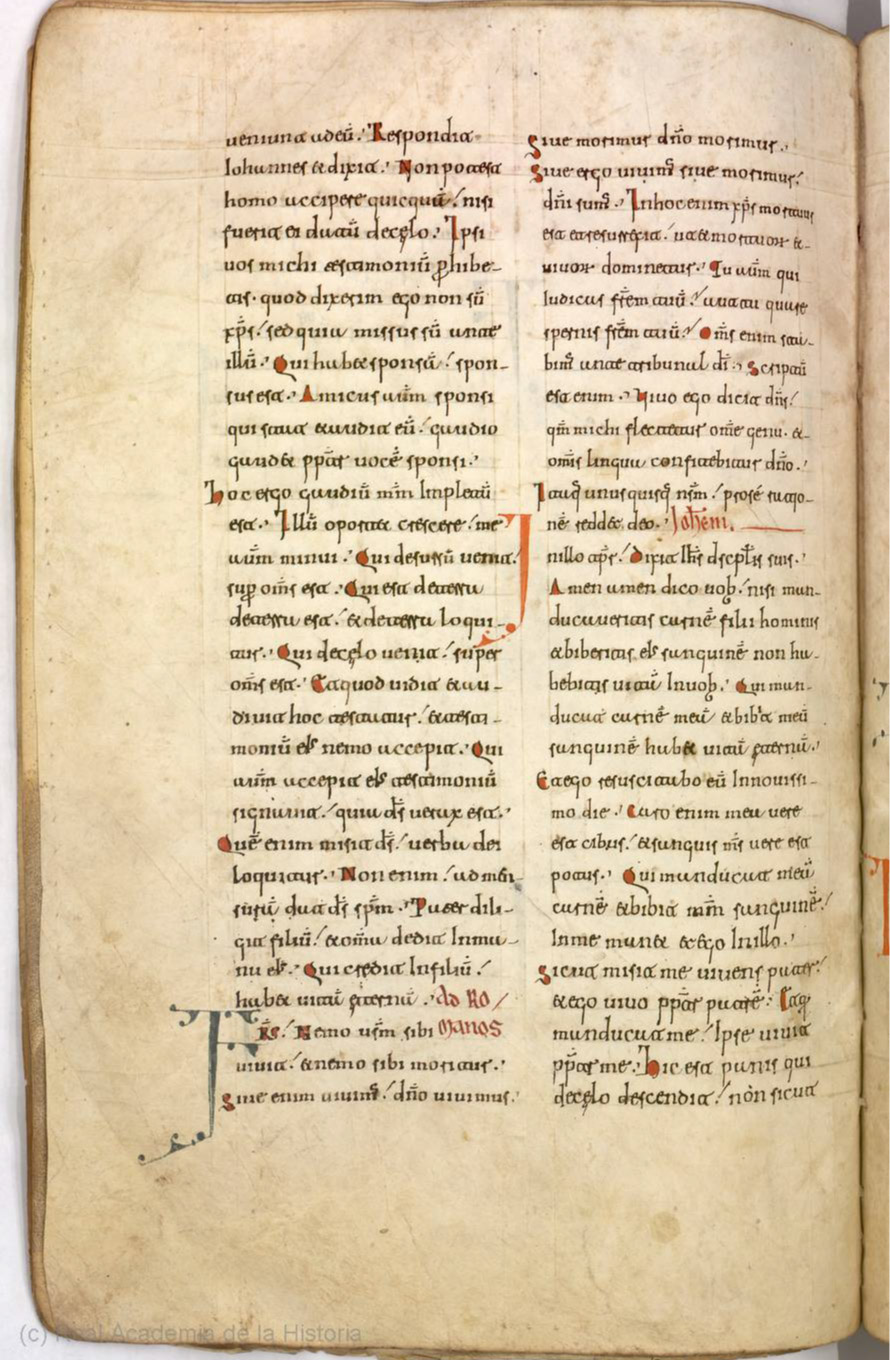 ueniunt ad eū. Respondit
Iohannes & dixit. Non potest
homo accipere quicquā. nisi
fuerit ei datū de cęlo. Ipsi
uos michi testimoniū ꝑhibe-
tis. quod dixerim ego non sū
xp̄s. sed quia missus sū ante
illū. Qui hab& sponsā. spon-
sus est. Amicus aūm sponsi
qui stat & audit eū. gaudio
gaud& ꝓpt̄ uocē sponsi.
Hoc ergo gaudiū mm̄ Impletū
est. Illū oport& crescere. me
aūm minui. Qui desursū uenit.
sup̄ om̄s est. Qui est de terra
de terra est. & de terra loqui-
tur. Qui de cęlo uenit. super
om̄s est. Et quod uidit & au-
diuit hoc testatur. & testi-
moniū ei͛s nemo accepit. Qui
aūm accepit ei͛s testimoniū
signauit. quia d̄s uerax est.
Quē enim misit d̄s. uerba dei
loquitur. Non enim. ad men-
surā dat d̄s sp̄m. Pater dili-
git filiū. & om̄a dedit In ma-
nu ei͛s. Qui credit In filiū.
hab& uitā ęternā. Ad Ro
FR̄s. Nemo ūsm sibi manos
uiuit. & nemo sibi moritur.
Siue enim uiuim͛. dn̄o uiuimus.
Siue morimur dn̄o morimur.
Siue ergo uiuim͛ siue morimur.
dn̄i sum͛. In hoc enim xp̄s mortuus
est et resurrexit. ut & mortuor &
uiuor dominetur. Tu aūm qui
Iudicas fr̄em tuū. aut tu quare
spernis fr̄em tuū. Om̄s enim sta-
bim͛ ante tribunal dī. Scriptū
est enim. Viuo ego dicit dn̄s.
qm̄ michi flectetur om̄e genu. &
om̄is lingua confitebitur dn̄o.
Itaq; unusquisq; ūsm. pro se ratio-
nē redd& deo. Ioh̄em.
In illo tp̄r. Dixit Ih̄s dscpl̄is suis.
Amen amen dico uob̄. nisi man-
ducaueritis carnē filii hominis
& biberitis ei͛s sanguinē non ha-
bebitis uitā In uob̄. Qui man-
ducat carnē meā & bibit meū
sanguinē hab& uitā ęternā.
Et ego resuscitabo eū In nouissi-
mo die. Caro enim mea uere
est cibus. & sanguis ms̄ uere est
potus. Qui manducat meā
carnē & bibit mm̄ sanguinē.
In me man& & ego In illo.
Sicut misit me uiuens pater.
& ego uiuo ꝓpt̄ patrē. Et q̇
manducat me. Ipse uiuit
ꝓpt̄ me. Hic est panis qui
de cęlo descendit. non sicut
(c) Real Academia de la Historia